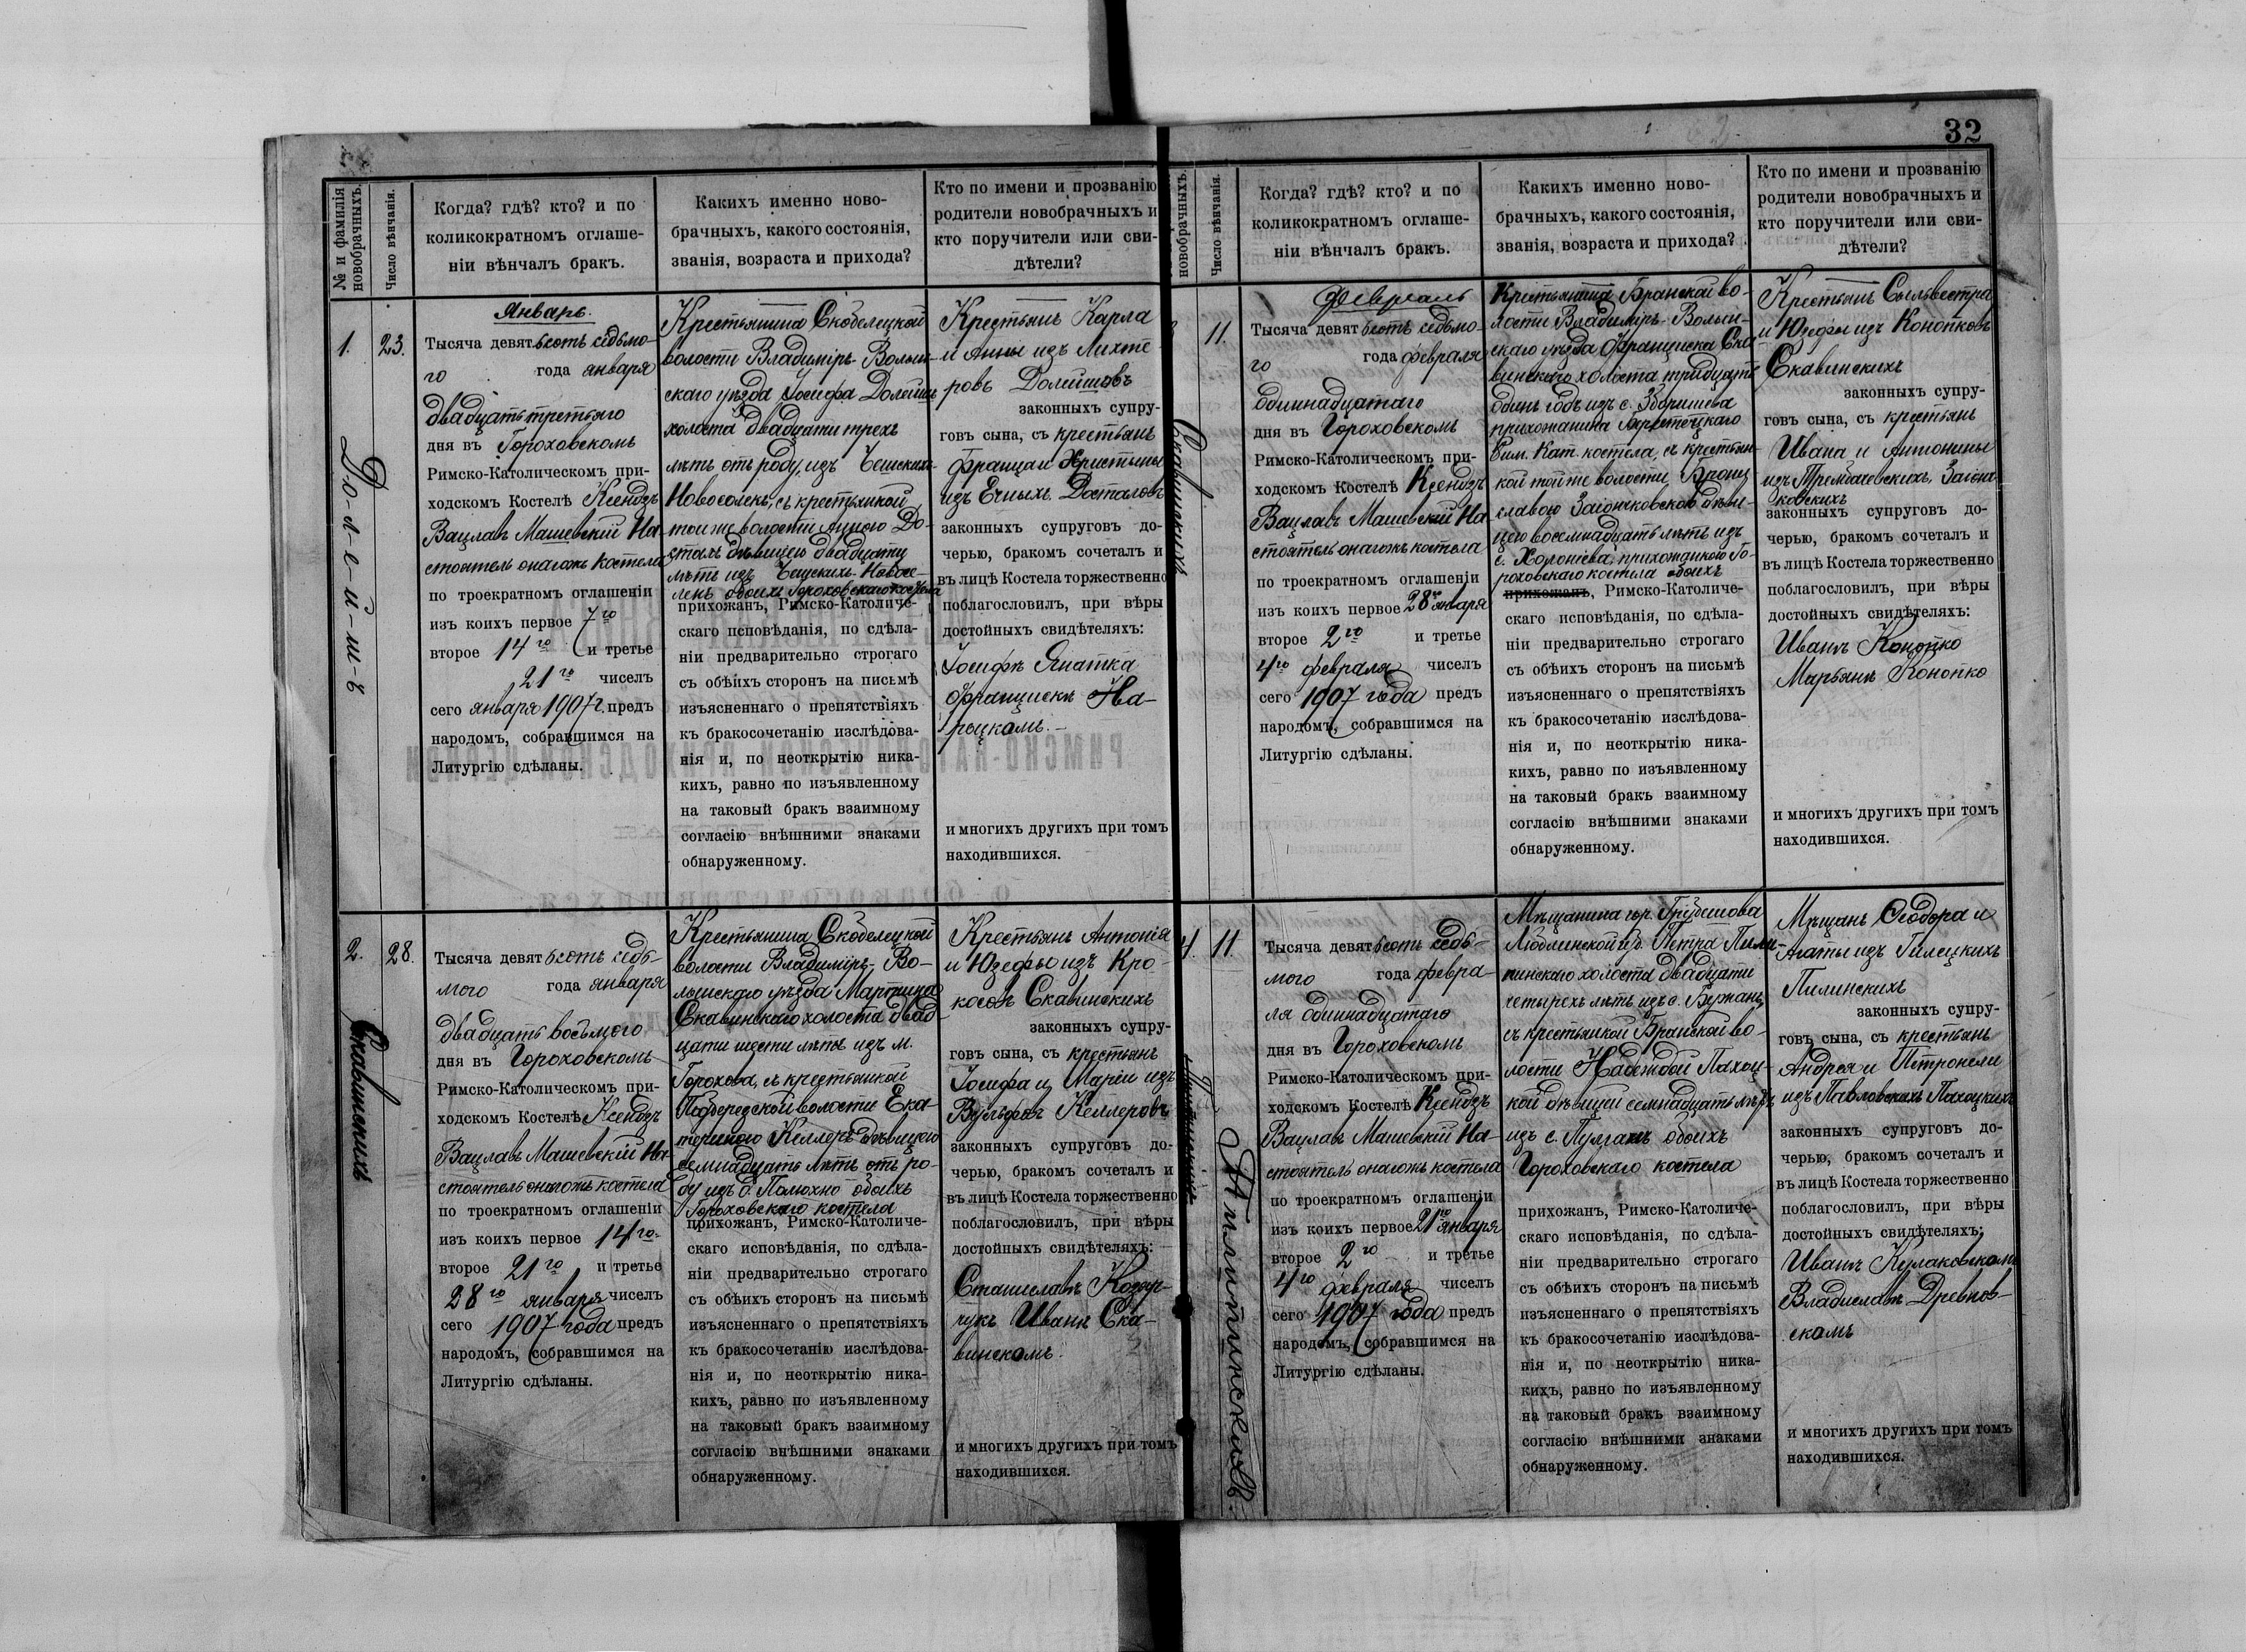 32
№ и фамилія новобрачныхъ.
Число вѣнчанія.
Когда? гдѣ? кто? и по
коликократномъ оглаше-
ніи вѣнчалъ бракъ.
Какихъ именно ново-
брачныхъ, какого состоянія,
званія, возраста и прихода?
Кто по имени и прозванію
родители новобрачныхъ и
кто поручители или сви-
дѣтели?
1.
Долейшъ
23.
Январь.
Тысяча девятьсотъ седьмо-
го года января
двадцать третьяго
дня въ Гороховскомъ
Римско-Католическомъ при-
ходскомъ Костелѣ Ксендзъ
Вацлавъ Машевскій На-
стоятель онагожъ костела
по троекратномъ оглашеніи
изъ коихъ первое 7го
второе 14го и третье
21го чиселъ
сего января 1907 г. предъ
народомъ, собравшимся на
Литургію сдѣланы.
Крестьянина Скобелецкой
волости Владиміръ-Волын-
скаго уѣзда Іосифа Долейшъ
холоста двадцати трехъ
лѣтъ отъ роду, изъ Чешскихъ-
Новоселекъ, съ крестьянкой
той же волости Анною До-
сталь дѣвицею двадцати
лѣтъ изъ Чешскихъ-Новосе-
лекъ обоихъ Гороховскаго костела
прихожанъ, Римско-Католиче-
скаго исповѣданія, по сдѣла-
ніи предварительно строгаго
съ обѣихъ сторонъ на письмѣ
изъясненнаго о препятствіяхъ
къ бракосочетанію изслѣдова-
нія и, по неоткрытію ника-
кихъ, равно по изъявленному
на таковый бракъ взаимному
согласію внѣшними знаками
обнаруженному.
Крестьянъ Карла
и Анны изъ Лихте-
ровъ Долейшовъ
законныхъ супру-
говъ сына, съ крестьянъ
Франца и Христины
изъ Ечныхъ Досталовъ
законныхъ супруговъ до-
черью, бракомъ сочеталъ и
въ лицѣ Костела торжественно
поблагословилъ, при вѣры
достойныхъ свидѣтеляхъ:
Іосифѣ Янатка
Францискѣ На-
рицкомъ.
и многихъ другихъ при томъ
находившихся.
2.
Скавинскихъ
28.
Тысяча девятьсотъ седь-
мого года января
двадцать восьмого
дня въ Гороховскомъ
Римско-Католическомъ при-
ходскомъ Костелѣ Ксендзъ
Вацлавъ Машевскій На-
стоятель онагожъ костела
по троекратномъ оглашеніи
изъ коихъ первое 14го
второе 21го и третье
28го января чиселъ
сего 1907 года предъ
народомъ, собравшимся на
Литургію сдѣланы.
Крестьянина Скобелецкой
волости Владиміръ-Во-
лынскаго уѣзда Мартина
Скавинскаго холоста двад
цати шести лѣтъ изъ м.
Горохова, съ крестьянкой
Подберезской волости Ека-
териною Келлеръ дѣвицею
семнадцать лѣтъ отъ ро-
ду изъ д. Полюхно обоихъ
Гороховскаго костела
прихожанъ, Римско-Католиче-
скаго исповѣданія, по сдѣла-
ніи предварительно строгаго
съ обѣихъ сторонъ на письмѣ
изъясненнаго о препятствіяхъ
къ бракосочетанію изслѣдова-
нія и, по неоткрытію ника-
кихъ, равно по изъявленному
на таковый бракъ взаимному
согласію внѣшними знаками
обнаруженному.
Крестьянъ Антонія
и Юзефы изъ Кро-
косовъ Скавинскихъ
законныхъ супру-
говъ сына, съ крестьянъ
Іосифа и Маріи изъ
Вульфовъ Келлеровъ
законныхъ супруговъ до-
черью, бракомъ сочеталъ и
въ лицѣ Костела торжественно
поблагословилъ, при вѣры
достойныхъ свидѣтеляхъ:
Станиславѣ
Иванѣ Ска-
винскомъ.
и многихъ другихъ при томъ
находившихся.
новобрачныхъ.
Число вѣнчанія.
Когда? гдѣ? кто? и по
коликократномъ оглаше-
ніи вѣнчалъ бракъ.
Какихъ именно ново-
брачныхъ, какого состоянія,
званія, возраста и прихода?
Кто по имени и прозванію
родители новобрачныхъ и
кто поручители или сви-
дѣтели?
Скавинскихъ
11.
Февраль
Тысяча девятьсотъ седьмо-
го года февраля
одиннадцатаго
дня въ Гороховскомъ
Римско-Католическомъ при-
ходскомъ Костелѣ Ксендзъ
Вацлавъ Машевскій На-
стоятель онагожъ костела
по троекратномъ оглашеніи
изъ коихъ первое 28го января
второе 2го и третье
4го февраля чиселъ
сего 1907 года предъ
народомъ, собравшимся на
Литургію сдѣланы.
Крестьянина Бранской во-
лости Владиміръ-Волын-
скаго уѣзда Франциска Ска-
винскаго холоста тридцать
одинъ годъ изъ с. Зборишева
прихожанина Берестечскаго
Рим. Кат. костела, съ крестьян-
кой той же волости Брони-
славою Заіончковской дѣви-
цею восемнадцать лѣтъ изъ
с. Холонева, прихожанкою Го-
роховскаго костела обоихъ
прихожанъ, Римско-Католиче-
скаго исповѣданія, по сдѣла-
ніи предварительно строгаго
съ обѣихъ сторонъ на письмѣ
изъясненнаго о препятствіяхъ
къ бракосочетанію изслѣдова-
нія и, по неоткрытію ника-
кихъ, равно по изъявленному
на таковый бракъ взаимному
согласію внѣшними знаками
обнаруженному.
Крестьянъ Сильвестра
и Юзефы изъ Конопковъ
Скавинскихъ
законныхъ супру-
говъ сына, съ крестьянъ
Ивана и Антонины
изъ Трембачевскихъ Заіонч-
ковскихъ
законныхъ супруговъ до-
черью, бракомъ сочеталъ и
въ лицѣ Костела торжественно
поблагословилъ, при вѣры
достойныхъ свидѣтеляхъ:
Иванѣ Конопко
Марьянѣ Конопко
и многихъ другихъ при томъ
находившихся.
4.
Пилипинскихъ.
11.
Тысяча девятьсотъ седь-
мого года февра-
ля одиннадцатаго
дня въ Гороховскомъ
Римско-Католическомъ при-
ходскомъ Костелѣ Ксендзъ
Вацлавъ Машевскій На-
стоятель онагожъ костела
по троекратномъ оглашеніи
изъ коихъ первое 21го января
второе 2го и третье
4го февраля чиселъ
сего 1907 года предъ
народомъ, собравшимся на
Литургію сдѣланы.
Мѣщанина гор. Грубешова
Люблинской губ. Петра Пили-
пинскаго холоста двадцати
четырехъ лѣтъ изъ с. Бужанъ,
съ крестьянкой Бранской во-
лости Надеждой Пахоц-
кой дѣвицей семнадцать лѣтъ
изъ с. Пулганъ обоихъ
Гороховскаго костела
прихожанъ, Римско-Католиче-
скаго исповѣданія, по сдѣла-
ніи предварительно строгаго
съ обѣихъ сторонъ на письмѣ
изъясненнаго о препятствіяхъ
къ бракосочетанію изслѣдова-
нія и, по неоткрытію ника-
кихъ, равно по изъявленному
на таковый бракъ взаимному
согласію внѣшними знаками
обнаруженному.
Мѣщанъ Ѳеодора и
Агаты изъ Гилецкихъ
Пилинскихъ
законныхъ супру-
говъ сына, съ крестьянъ
Андрея и Петронели
изъ Павловскихъ Пахоцкихъ
законныхъ супруговъ до-
черью, бракомъ сочеталъ и
въ лицѣ Костела торжественно
поблагословилъ, при вѣры
достойныхъ свидѣтеляхъ:
Иванѣ Кулаковскомъ
Владиславѣ Древнов-
скомъ
и многихъ другихъ при томъ
находившихся.